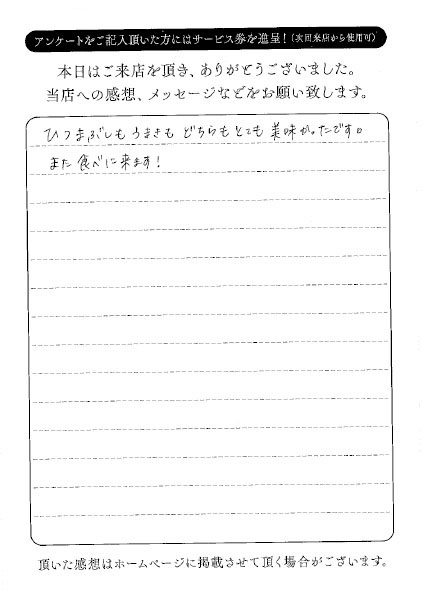 アンケートをご記入頂いた方にはサービス券を進呈!(次回来店から使用可)
本日はご来店を頂き、ありがとうございました。
当店への感想、メッセージなどをお願い致します。
ひつまぶしも うまきも どちらもとても 美味かったです。
また食べに来ます!
頂いた感想はホームページに掲載させて頂く場合がございます。